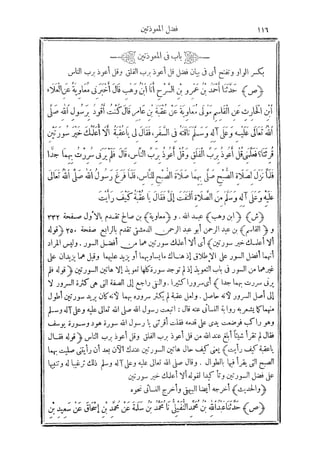 ١١٦ فضل المعوذتين
باب فى المعوذتين
بكسر الواو وتفتح أى فى بيان فضل قل أعوذ برب الفلق وقل أعوذ برب الناس
(ص) حَدَّثَنَا أَحْمَدُ بْنُ عَمْرِو بْنِ السَّرْحِ أَنَا ابْنُ وَهْبٍ قَالَ أَخْبَرَنِى مُعَاوِيَةُ عَنِ الْعَلَاءِ
ابْنِ الْحَارِثِ عَنِ الْقَاسِمِ مَوْلَى مُعَاوِيَةَ عَنْ عُقْبَةَ بْنِ عَامِرٍ قَالَ كُنْتُ أَقُودُ بِرَسُولِ اللهِ صَلَّى
اللهُ تَعَالَى عَلَيْهِ وَعَلَى آلِهِ وَسَلَّمَ نَاقَتَهُ فِى السَّفَرِ، فَقَالَ لِى يَاعُقْبَةُ أَلَا أُعَلِّمُكَ خَيْرَ سُورَتَيْنِ
قُرِئَتَا؟ فَعَلَّمَنِى قُلْ أَعُوذُ بِرَبِّ الْفَلَقِ وَقُلْ أَعُوذُ بِرَبِّ النَّاسِ، قَالَ فَلَمْ يَرَنِى سُرِرْتُ بِهِمَا جِدًّا
فَلَمَّا نَزَلَ لِصَلَاةِ الصُّبْحِ صَلَّى بِهِمَا صَلَاةَ الصُّبْحِ لِلنَّاسِ، فَلَمَّا فَرَغَ رَسُولُ اللهِ صَلَّى اللهُ تَعَالَى
عَلَيْهِ وَعَلَى آلِهِ وَسَلَّمَ مِنَ الصَّلَاةِ الْتَفَتَ إِلَىَّ فَقَالَ يَاعُقْبَةُ كَيْفَ رَأَيْتَ
(ش) (ابن وهب) عبد الله. و (معاوية) بن صالح تقدم بالأول صفحة ٢٣٢
و (القاسم) بن عبد الرحمن أبو عبد الرحمن الدمشقى تقدم بالرابع صفحة ٢٥٠ (قوله
ألا أعلمك خير سورتين) أى ألا أعلمك سورتين هما من أفضل السور. وليس المراد
أنهما أفضل السور على الإطلاق إذ هناك مايساويهما أو يزيد عليهما وقيل هما يزيدان على
غيرهما من السور فى باب التعويذ إذ لم توجد سورة كلها تعويذ إلا هاتين السورتين (قوله فلم
يرنى سررت بهما جدا) أى سرورا كثيرا. والنفى راجع إلى الصفة التى هى كثرة السرور لا
إلى أصل السرور لأنه حاصل. ولعل عقبة لم يكثر سروره بهما لأنه كان يريد سورتين أطول
منهما كما يشعر به رواية النسائى عنه قال: اتبعت رسول الله صلى الله تعالى عليه وعلى آله وسلم
وهو راكب فوضعت يدى على قدمه فقلت أقرئنى يا رسول الله سورة هود وسورة يوسف
فقال لم تقرأ شيئا أبلغ عند الله من قل أعوذ برب الفلق وقل أعوذ برب الناس (قوله فقال
ياعقبة كيف رأيت) يعنى كيف حال هاتين السورتين عندك الآن بعد أن رأيتنى صليت بهما
الصبح التى يقرأ فيها بالطوال. وقال صلى الله تعالى عليه وعلى آله وسلم ذلك ترغيبا له وتنبيها
على فضل السورتين وتأكيدا لقوله ألا أعلمك خير سورتين
(والحديث) أخرجه أيضا البيهقى وأخرج النسائى نحوه
(ص) حَدَّثَنَا عَبْدُ اللهِ بْنُ مُحَمَّدٍ النُّفَيْلِىُّ نَا مُحَمَّدُ بْنُ سَلَمَةَ عَنْ مُحَمَّدِ بْنِ إِسْحَاقَ عَنْ سَعِيدِ بْنِ